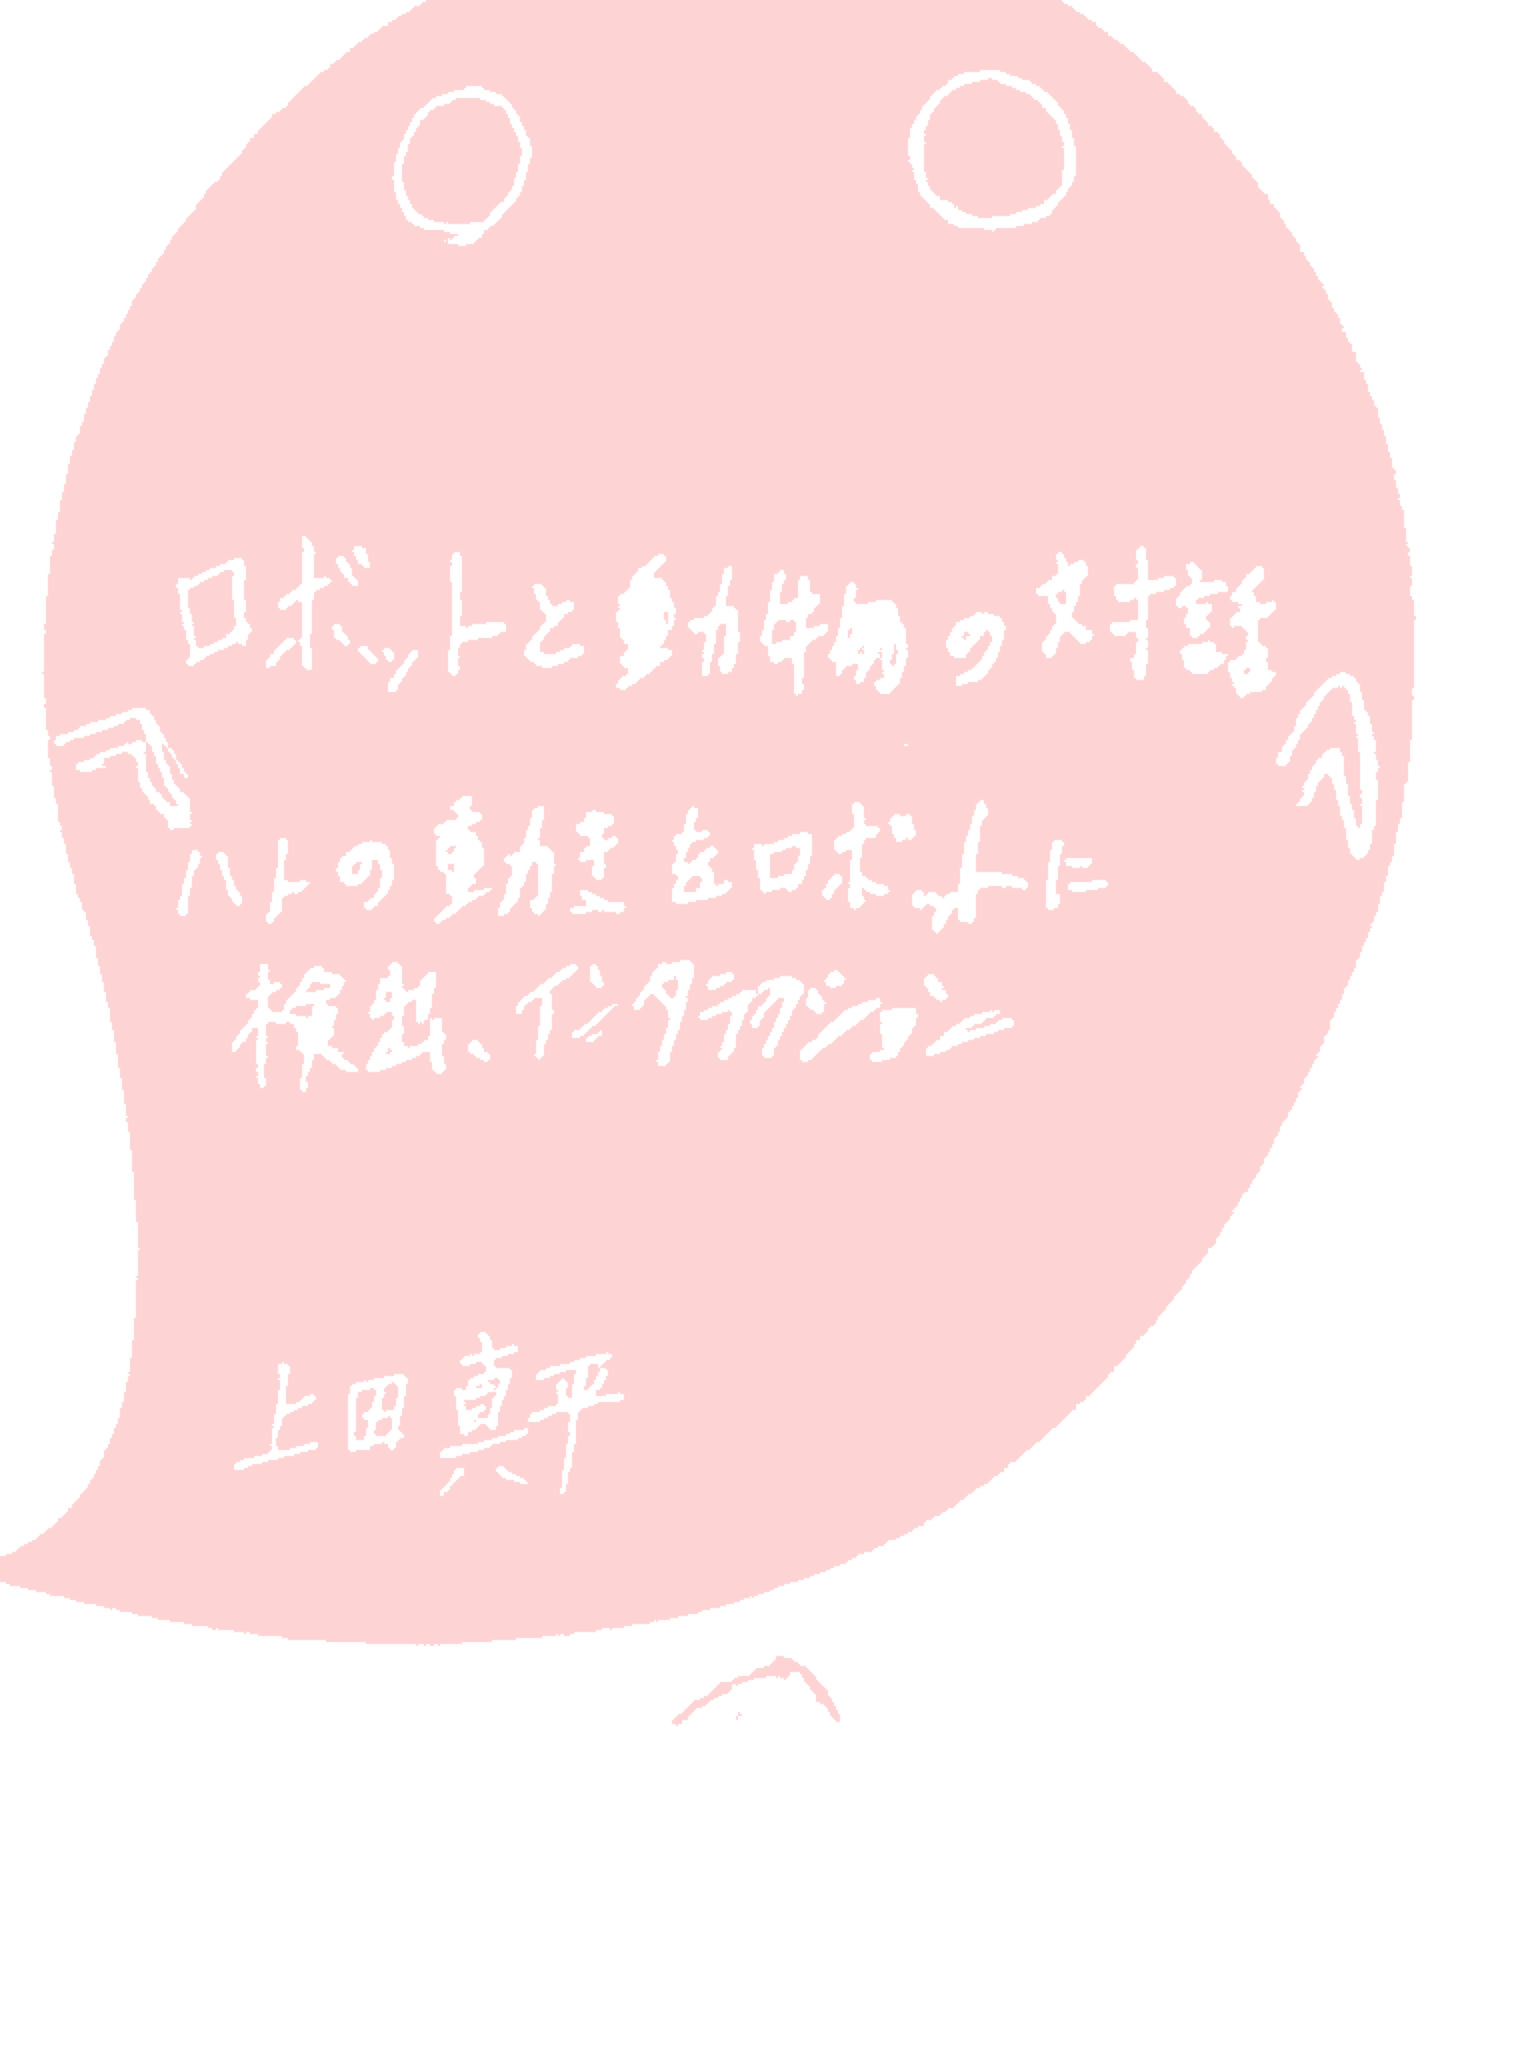 ロボットと動物の対話
ハトの動きをロボットに
検出、インタラクション
上田真平